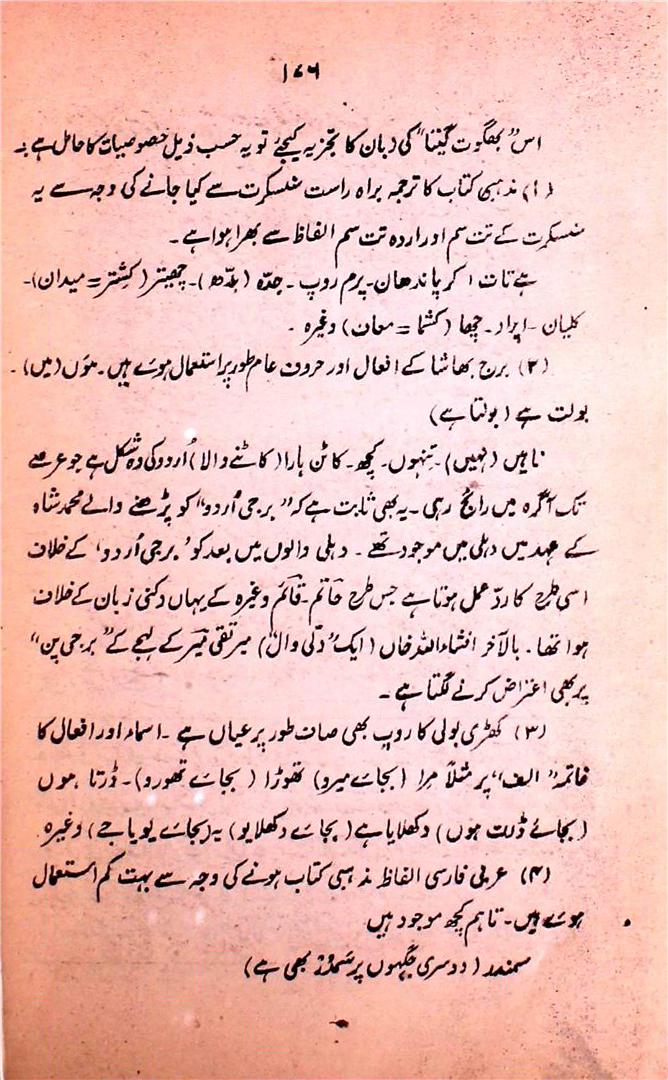 ۱۷۶
اس "بھگوت گیتا" کی زبان کا تجزیہ کیجئے تو یہ حسب ذیل خصوصیات کا حامل ہے :۔
(۱) مذہبی کتاب کا ترجمہ براہ راست سنسکرت سے کیا جانے کی وجہ سے یہ
سنسکرت کے تت سم اور اردہ تت سم الفاظ سے بھرا ہوا ہے ۔
ہے تات ! کرپاندھان ۔ پرم روپ ۔ جدّہ (یدّھ) ۔ چھیتر (کشتر = میدان) ۔
کلیان ۔ اپراد ۔ چھا (کشما = معاف) وغیرہ ۔
(۲) برج بھاشا کے افعال اور حروف عام طور پر استعمال ہوئے ہیں ۔ موں (میں) ۔
بولت ہے (بولتا ہے)
ناہیں (نہیں) ۔ تنہوں ۔ کچھ ۔ کاٹن ہارا (کاٹنے والا) اُردو کی وہ شکل ہے جو عرصے
تک آگرہ میں رائج رہی ۔ یہ بھی ثابت ہے کہ "برجی اُردو" کو پڑھنے والے محمد شاہ
کے عہد میں دہلی میں موجود تھے ۔ دہلی والوں میں بعد کو 'برجی اُردو' کے خلاف
اسی طرح کا ردّ عمل ہوتا ہے جس طرح حاتم ۔ قائم وغیرہ کے یہاں دکنی زبان کے خلاف
ہوا تھا ۔ بالآخر انشاء اللہ خاں (ایک "دلّی وال") میر تقی میر کے لہجے کے "برجی پن"
پر بھی اعتراض کرنے لگتا ہے ۔
(۳) کھڑی بولی کا روپ بھی صاف طور پر عیاں ہے ۔ اسماء اور افعال کا
خاتمہ "الف" پر مثلاً مرا (بجائے میرو) تھوڑا (بجائے تھورو) ۔ ڈرتا ہوں
(بجائے ڈرت ہوں) دکھلایا ہے (بجائے دکھلایو) یہ (بجائے یو یا جے) وغیرہ
(۴) عربی فارسی الفاظ مذہبی کتاب ہونے کی وجہ سے بہت کم استعمال
ہوئے ہیں ۔ تاہم کچھ موجود ہیں
سمندر (دوسری جگہوں پر سمدر بھی ہے)